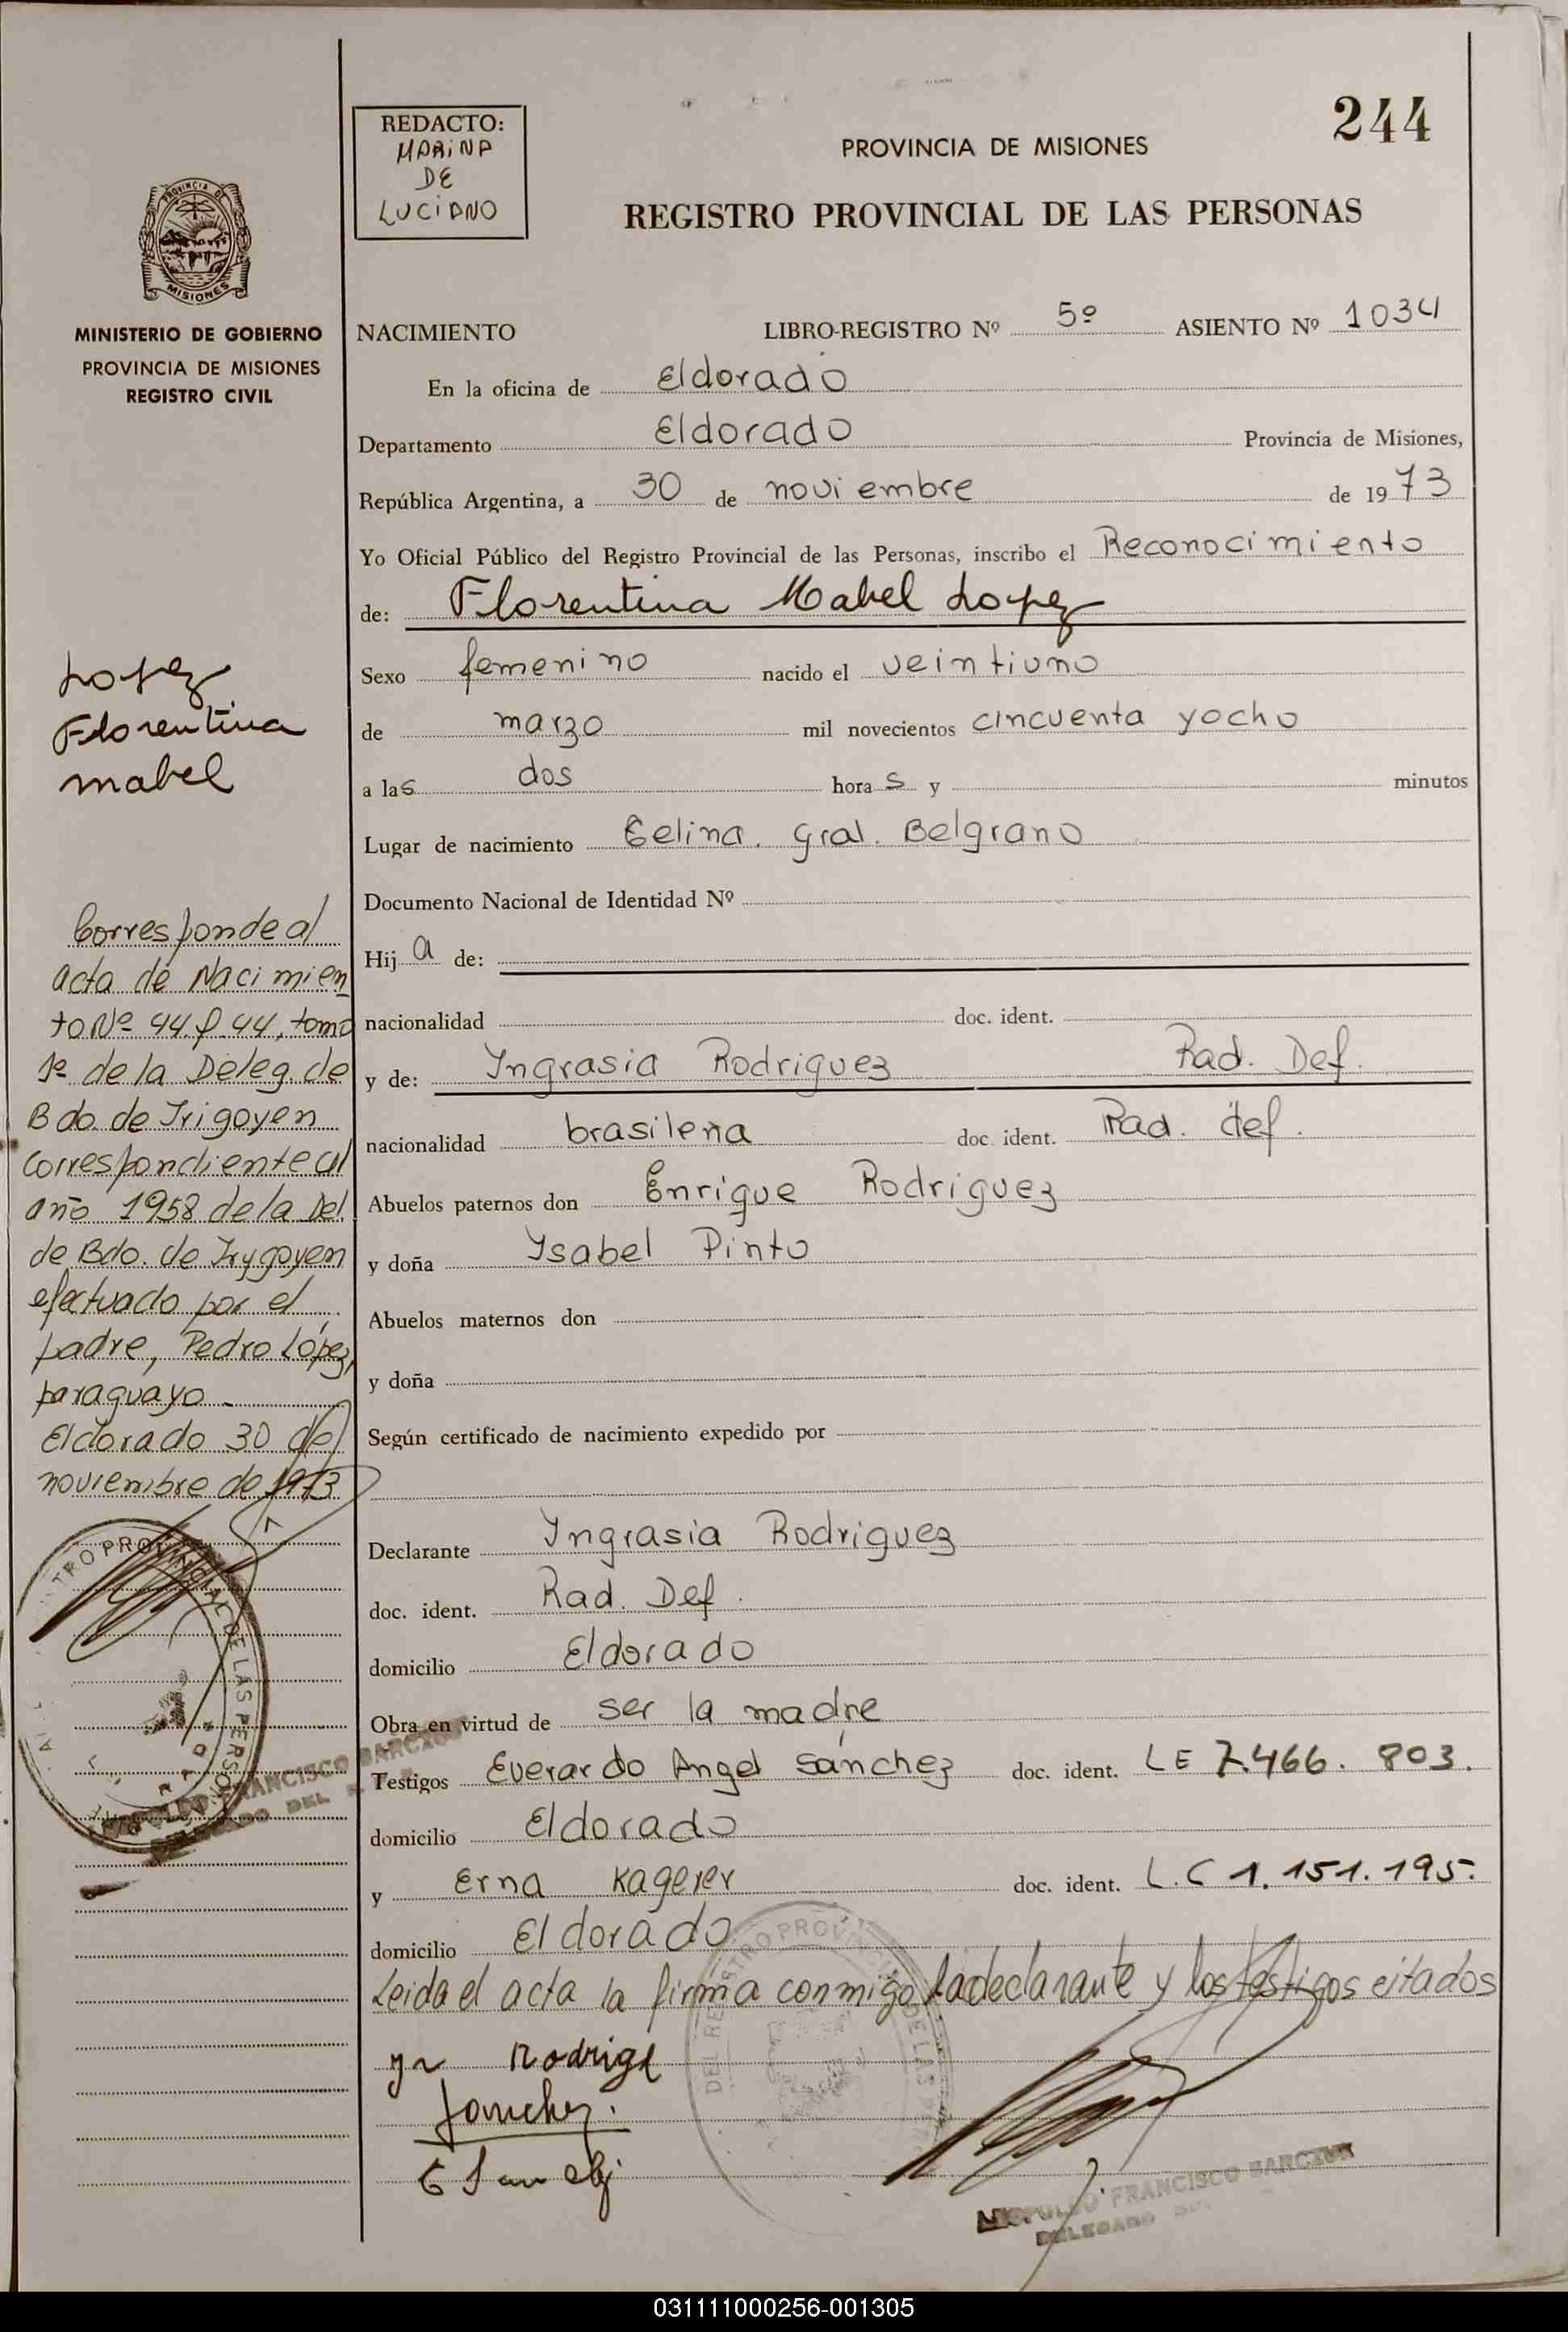 244
REDACTO:
MARINA
DE
LUCIANO
PROVINCIA DE MISIONES
REGISTRO PROVINCIAL DE LAS PERSONAS
PROVINCIA DE
MISIONES
MINISTERIO DE GOBIERNO
PROVINCIA DE MISIONES
REGISTRO CIVIL
Lopez
Florentina
mabel
Corresponde al
acta de Nacimien
to Nº 44. f. 44, tomo
1º de la Deleg. de
Bdo. de Irigoyen
correspondiente al
año 1958 de la Del.
de Bdo. de Irygoyen
efectuado por el
padre, Pedro López,
paraguayo.
Eldorado 30 de
noviembre de 1973
NACIMIENTO LIBRO-REGISTRO Nº 5º ASIENTO Nº 1034
En la oficina de Eldorado
Departamento Eldorado Provincia de Misiones,
República Argentina, a 30 de noviembre de 1973
Yo Oficial Público del Registro Provincial de las Personas, inscribo el Reconocimiento
de: Florentina Mabel Lopez
Sexo femenino nacido el veintiuno
de marzo mil novecientos cincuenta y ocho
a las dos horas y minutos
Lugar de nacimiento Celina. Gral. Belgrano
Documento Nacional de Identidad Nº
Hija de:
nacionalidad doc. ident.
y de: Yngrasia Rodriguez Rad. Def.
nacionalidad brasileña doc. ident. Rad. def.
Abuelos paternos don Enrique Rodriguez
y doña Ysabel Pinto
Abuelos maternos don
y doña
Según certificado de nacimiento expedido por
Declarante Yngrasia Rodriguez
doc. ident. Rad. Def.
domicilio Eldorado
Obra en virtud de ser la madre
Testigos Everardo Angel Sánchez doc. ident. LE 7.466.803.
domicilio Eldorado
y Erna Kagerer doc. ident. L.C 1.151.195.
domicilio Eldorado
Leida el acta la firma conmigo la declarante y los testigos citados
Sanchez.
FRANCISCO
DELEGADO DEL
DEL REGISTRO PROVINCIAL DE LAS PERS
FRANCISCO
DELEGADO
031111000256-001305